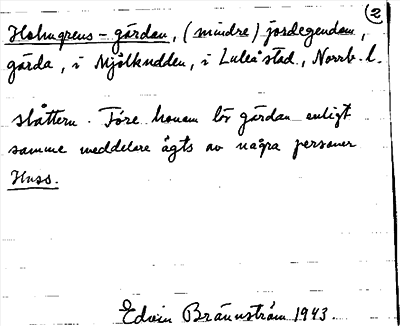 2
Holmgrens-gårdan, (mindre) jordegendom,
gärda, i Mjölkudden, i Luleå stad, Norrb. l.
slåttern. Före honom lör gårdan enligt
samme meddelare ägts av några personer
Huss.
Edvin Brännström 1943.